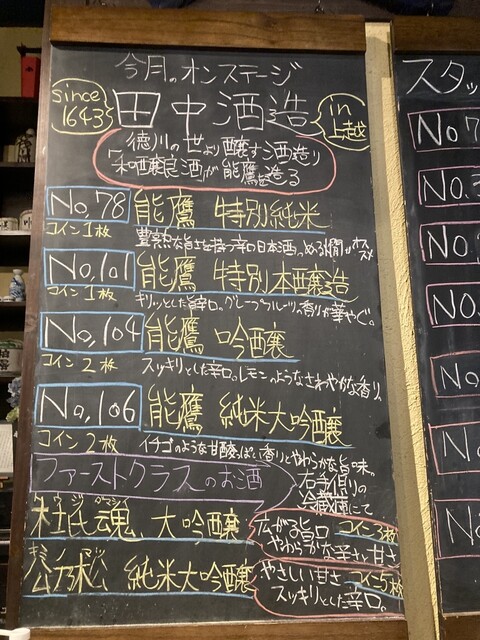 今月のオンステージ
since
1643
田中酒造
in
上越
徳川の世より醸す酒造り
「和醸良酒」が能鷹を造る
No,78 能鷹 特別純米
コイン1枚
No,101 能鷹 特別本醸造
コイン1枚
キリッとした辛口。グレープフルーツの香りが華やぐ。
No,104 能鷹 吟醸
コイン2枚 スッキリとした辛口。レモンのようなさわやかな香り。
No,106 能鷹 純米大吟醸
コイン2枚 イチゴのような甘酸っぱい香りとやわらかな旨味。
ファーストクラスのお酒
右手側の
冷蔵庫にて
魂 大吟醸
広がる旨口 コイン3枚
やわらかな辛さ、甘さ
純米大吟醸
やさしい甘さ コイン5枚
スッキリとした辛口。
スタッ
No
No.
No.
No.
No.
No
No